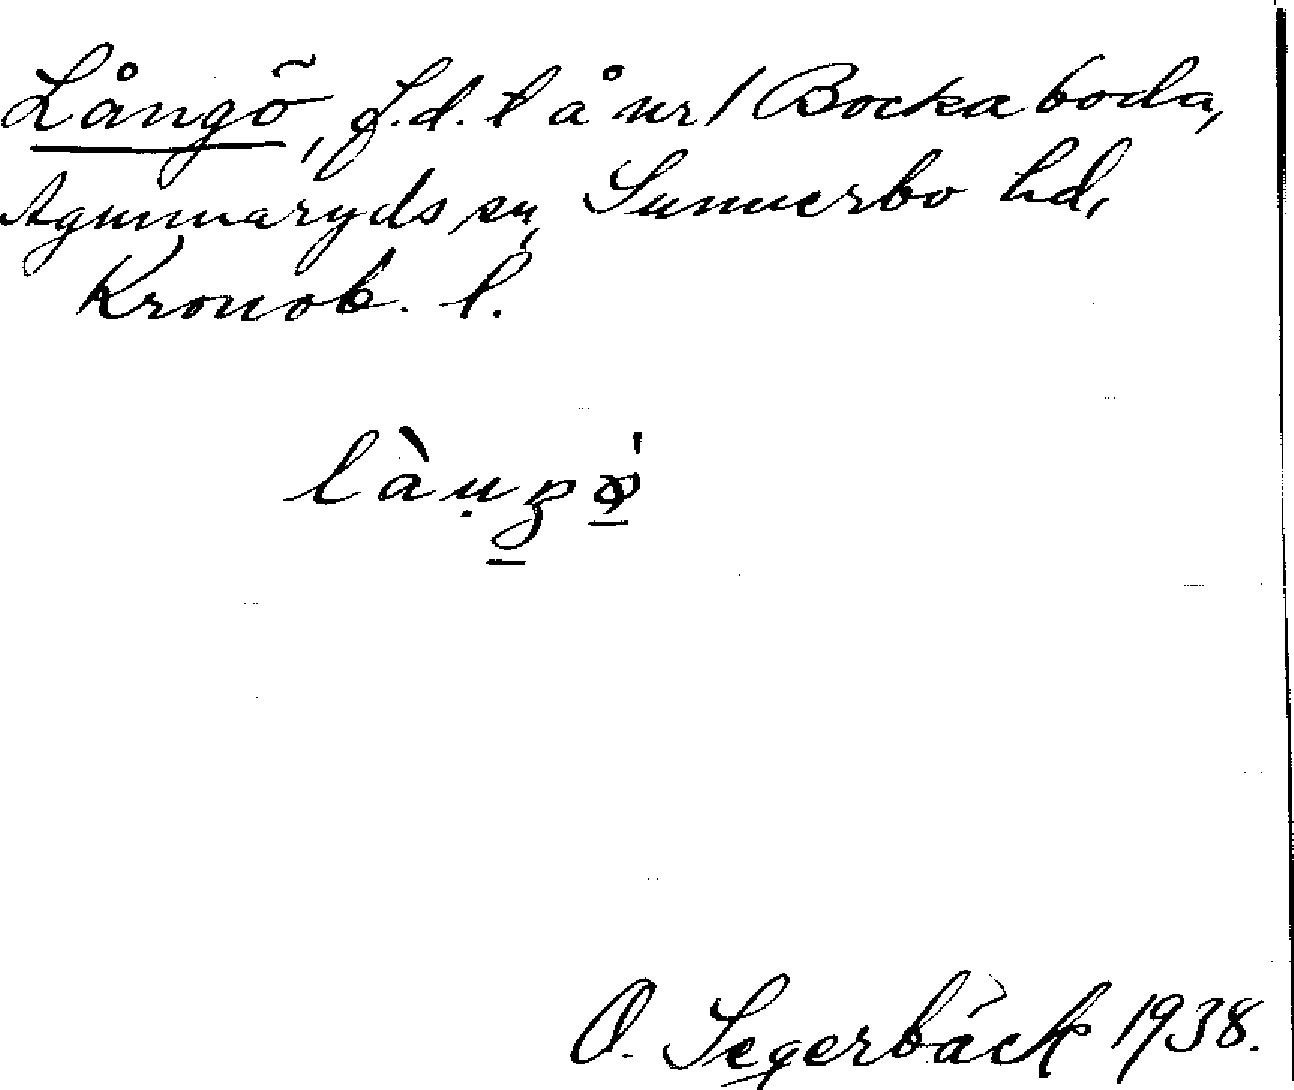 Långö, f.d. t å nr 1 Bockaboda,
Agunnaryds sn, Sunnerbo hd,
Kronob. l.
O. Segerbäck 1938.